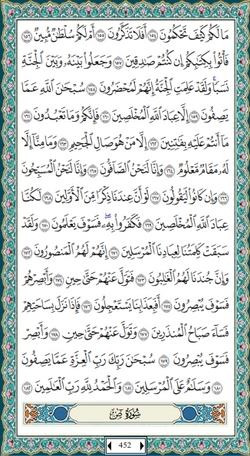 مَا لَكُمْ كَيْفَ تَحْكُمُونَ ١٥٤ أَفَلَا تَذَكَّرُونَ ١٥٥ أَمْ لَكُمْ سُلْطَٰنٌ مُّبِينٌ ١٥٦
فَأْتُوا۟ بِكِتَٰبِكُمْ إِن كُنتُمْ صَٰدِقِينَ ١٥٧ وَجَعَلُوا۟ بَيْنَهُۥ وَبَيْنَ ٱلْجِنَّةِ
نَسَبًا ۚ وَلَقَدْ عَلِمَتِ ٱلْجِنَّةُ إِنَّهُمْ لَمُحْضَرُونَ ١٥٨ سُبْحَٰنَ ٱللَّهِ عَمَّا
يَصِفُونَ ١٥٩ إِلَّا عِبَادَ ٱللَّهِ ٱلْمُخْلَصِينَ ١٦٠ فَإِنَّكُمْ وَمَا تَعْبُدُونَ ١٦١
مَآ أَنتُمْ عَلَيْهِ بِفَٰتِنِينَ ١٦٢ إِلَّا مَنْ هُوَ صَالِ ٱلْجَحِيمِ ١٦٣ وَمَا مِنَّآ إِلَّا
لَهُۥ مَقَامٌ مَّعْلُومٌ ١٦٤ وَإِنَّا لَنَحْنُ ٱلصَّآفُّونَ ١٦٥ وَإِنَّا لَنَحْنُ ٱلْمُسَبِّحُونَ
١٦٦ وَإِن كَانُوا۟ لَيَقُولُونَ ١٦٧ لَوْ أَنَّ عِندَنَا ذِكْرًا مِّنَ ٱلْأَوَّلِينَ ١٦٨ لَكُنَّا
عِبَادَ ٱللَّهِ ٱلْمُخْلَصِينَ ١٦٩ فَكَفَرُوا۟ بِهِۦ ۖ فَسَوْفَ يَعْلَمُونَ ١٧٠ وَلَقَدْ
سَبَقَتْ كَلِمَتُنَا لِعِبَادِنَا ٱلْمُرْسَلِينَ ١٧١ إِنَّهُمْ لَهُمُ ٱلْمَنصُورُونَ ١٧٢
وَإِنَّ جُندَنَا لَهُمُ ٱلْغَٰلِبُونَ ١٧٣ فَتَوَلَّ عَنْهُمْ حَتَّىٰ حِينٍ ١٧٤ وَأَبْصِرْهُمْ
فَسَوْفَ يُبْصِرُونَ ١٧٥ أَفَبِعَذَابِنَا يَسْتَعْجِلُونَ ١٧٦ فَإِذَا نَزَلَ بِسَاحَتِهِمْ
فَسَآءَ صَبَاحُ ٱلْمُنذَرِينَ ١٧٧ وَتَوَلَّ عَنْهُمْ حَتَّىٰ حِينٍ ١٧٨ وَأَبْصِرْ
فَسَوْفَ يُبْصِرُونَ ١٧٩ سُبْحَٰنَ رَبِّكَ رَبِّ ٱلْعِزَّةِ عَمَّا يَصِفُونَ
١٨٠ وَسَلَٰمٌ عَلَى ٱلْمُرْسَلِينَ ١٨١ وَٱلْحَمْدُ لِلَّهِ رَبِّ ٱلْعَٰلَمِينَ ١٨٢
سُورَةُ صٓ
452